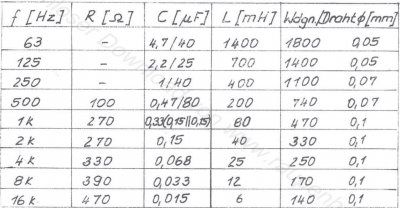 f [Hz] R [Ω] C [µF] L [mH] Wdgn. Draht ϕ [mm]
63 - 4,7/40 1400 1800 0,05
125 - 2,2/25 700 1400 0,05
250 - 1/40 400 1100 0,07
500 100 0,47/80 200 740 0,07
1k 270 0,33(0,15||0,15) 80 470 0,1
2k 270 0,15 40 330 0,1
4k 330 0,068 25 250 0,1
8k 390 0,033 12 170 0,1
16k 470 0,015 6 140 0,1